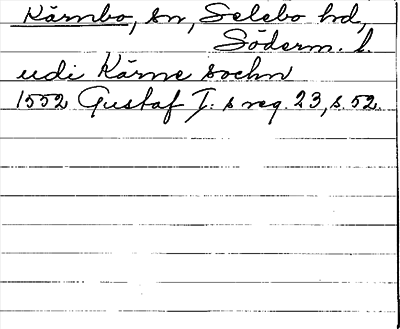 Kärnbo, sn, Selebo hd,
Söderm. l.
udi Kärne sochn
1552 Gustaf I:s reg. 23, s. 52.